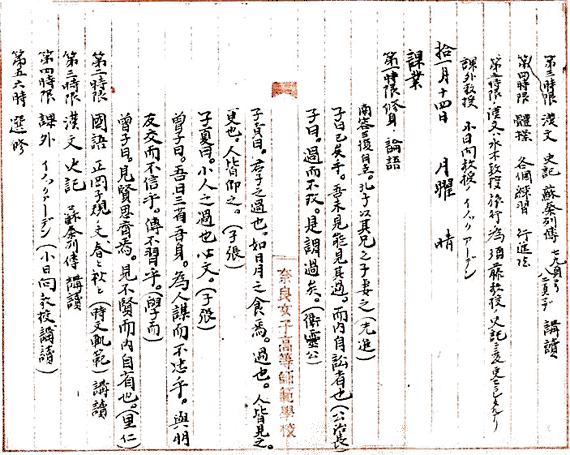 第三時限 漢文 史記 蘇秦列傳 講讀
第四時限 體操 各個練習 行進法
課外教授 小日向教授 イノックアーデン
拾一月十四日 月曜 晴
課業
第一時限 修身 論語
南容三復白圭。孔子以其兄之子妻之（先進）
子曰已矣乎。吾未見能見其過。而内自訟者也（公冶長）
子曰。過而不改。是謂過矣。（衞靈公）
子貢曰。君子之過也。如日月之食焉。過也。人皆見之。
更也。人皆仰之。（子張）
子夏曰。小人之過也必文。（子張）
曾子曰。吾日三省吾身。為人謀而不忠乎。與朋
友交而不信乎。傳不習乎。（學而）
曾子曰。見賢思齊焉。見不賢而内自省也。（里仁）
第二時限 國語 正岡子規 文 春と秋と（時文軌範）講讀
第三時限 漢文 史記 蘇秦列傳 講讀
第四時限 課外 イノックアーデン（小日向教授講讀）
第五六時 選修
奈良女子高等師範學校